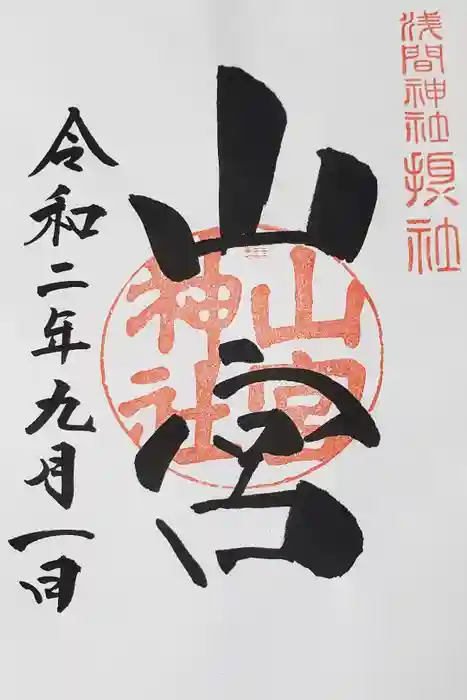 浅間神社摂社
山宮
山宮神社
令和二年九月一日